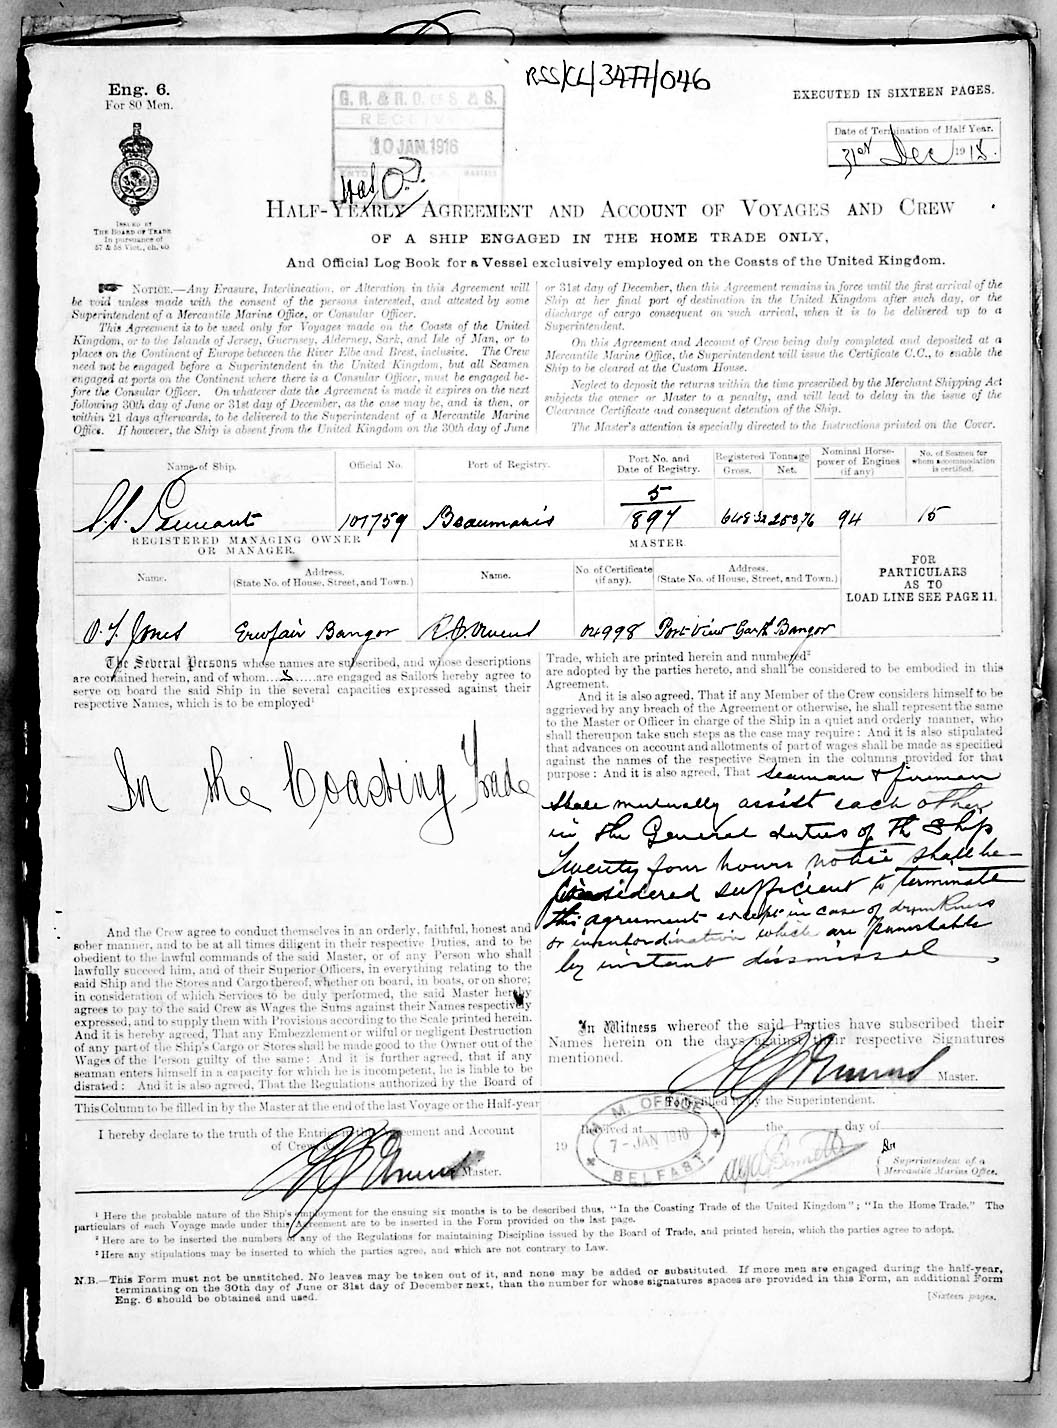 RSS/CL/3477/046
Eng. 6.
For 80 Men.
EXECUTED IN SIXTEEN PAGES.
G. R. & R. O. of S. & S.
RECEIVED
10 JAN. 1916
Date of Termination of Half Year.
31st Dec 1915.
ISSUED BY
THE BOARD OF TRADE
In pursuance of
57 & 58 Vict., ch. 60
HALF-YEARLY AGREEMENT AND ACCOUNT OF VOYAGES AND CREW
OF A SHIP ENGAGED IN THE HOME TRADE ONLY,
And Official Log Book for a Vessel exclusively employed on the Coasts of the United Kingdom.
NOTICE.—Any Erasure, Interlineation, or Alteration in this Agreement will
be void unless made with the consent of the persons interested, and attested by some
Superintendent of a Mercantile Marine Office, or Consular Officer.
This Agreement is to be used only for Voyages made on the Coasts of the United
Kingdom, or to the Islands of Jersey, Guernsey, Alderney, Sark, and Isle of Man, or to
places on the Continent of Europe between the River Elbe and Brest, inclusive. The Crew
need not be engaged before a Superintendent in the United Kingdom, but all Seamen
engaged at ports on the Continent where there is a Consular Officer, must be engaged be-
fore the Consular Officer. On whatever date the Agreement is made it expires on the next
following 30th day of June or 31st day of December, as the case may be, and is then, or
within 21 days afterwards, to be delivered to the Superintendent of a Mercantile Marine
Office. If however, the Ship is absent from the United Kingdom on the 30th day of June
or 31st day of December, then this Agreement remains in force until the first arrival of the
Ship at her final port of destination in the United Kingdom after such day, or the
discharge of cargo consequent on such arrival, when it is to be delivered up to a
Superintendent.
On this Agreement and Account of Crew being duly completed and deposited at a
Mercantile Marine Office, the Superintendent will issue the Certificate C.C., to enable the
Ship to be cleared at the Custom House.
Neglect to deposit the returns within the time prescribed by the Merchant Shipping Act
subjects the owner or Master to a penalty, and will lead to delay in the issue of the
Clearance Certificate and consequent detention of the Ship.
The Master's attention is specially directed to the Instructions printed on the Cover.
Name of Ship. Official No. Port of Registry. Port No. and Date of Registry. Registered Tonnage Gross. Net. Nominal Horse-power of Engines (if any) No. of Seamen for whom accommodation is certified.
S.S. Pennant 107759 Beaumaris 5/1897 648.32 253.76 94 15
REGISTERED MANAGING OWNER
OR MANAGER.
MASTER.
Name. Address. (State No. of House, Street, and Town.) Name. No. of Certificate (if any). Address. (State No. of House, Street, and Town.)
FOR
PARTICULARS
AS TO
LOAD LINE SEE PAGE 11.
O. T. Jones Erwfair Bangor R J Owens 04998 Port View Garth Bangor
The Several Persons whose names are subscribed, and whose descriptions
are contained herein, and of whom are engaged as Sailors hereby agree to
serve on board the said Ship in the several capacities expressed against their
respective Names, which is to be employed¹
In the Coasting Trade
And the Crew agree to conduct themselves in an orderly, faithful, honest and
sober manner, and to be at all times diligent in their respective Duties, and to be
obedient to the lawful commands of the said Master, or of any Person who shall
lawfully succeed him, and of their Superior Officers, in everything relating to the
said Ship and the Stores and Cargo thereof, whether on board, in boats, or on shore;
in consideration of which Services to be duly performed, the said Master hereby
agrees to pay to the said Crew as Wages the Sums against their Names respectively
expressed, and to supply them with Provisions according to the Scale printed herein.
And it is hereby agreed, That any Embezzlement or wilful or negligent Destruction
of any part of the Ship's Cargo or Stores shall be made good to the Owner out of the
Wages of the Person guilty of the same: And it is further agreed, that if any
seaman enters himself in a capacity for which he is incompetent, he is liable to be
disrated: And it is also agreed, That the Regulations authorized by the Board of
Trade, which are printed herein and numbered²
are adopted by the parties hereto, and shall be considered to be embodied in this
Agreement.
And it is also agreed, That if any Member of the Crew considers himself to be
aggrieved by any breach of the Agreement or otherwise, he shall represent the same
to the Master or Officer in charge of the Ship in a quiet and orderly manner, who
shall thereupon take such steps as the case may require: And it is also stipulated
that advances on account and allotments of part of wages shall be made as specified
against the names of the respective Seamen in the columns provided for that
purpose: And it is also agreed, That Seaman & fireman
shall mutually assist each other
in the General duties of the Ship
Twenty four hours notice shall be
Considered sufficient to terminate
this agrument except in case of drunkness
or insubordination which are punishable
by instant dismissal.
In Witness whereof the said Parties have subscribed their
Names herein on the days against their respective Signatures
mentioned.
R J Owens Master.
This Column to be filled in by the Master at the end of the last Voyage or the Half-year
I hereby declare to the truth of the Entries in this Agreement and Account
of Crew, &c.
R J Owens Master.
To be filled in by the Superintendent.
Received at the day of
19
M. M. OFFICE
7 - JAN 1916
BELFAST
Superintendent of a
Mercantile Marine Office.
¹ Here the probable nature of the Ship's employment for the ensuing six months is to be described thus, "In the Coasting Trade of the United Kingdom"; "In the Home Trade." The
particulars of each Voyage made under this Agreement are to be inserted in the Form provided on the last page.
² Here are to be inserted the numbers of any of the Regulations for maintaining Discipline issued by the Board of Trade, and printed herein, which the parties agree to adopt.
³ Here any stipulations may be inserted to which the parties agree, and which are not contrary to Law.
N.B.—This Form must not be unstitched. No leaves may be taken out of it, and none may be added or substituted. If more men are engaged during the half-year,
terminating on the 30th day of June or 31st day of December next, than the number for whose signatures spaces are provided in this Form, an additional Form
Eng. 6 should be obtained and used.
[Sixteen pages.